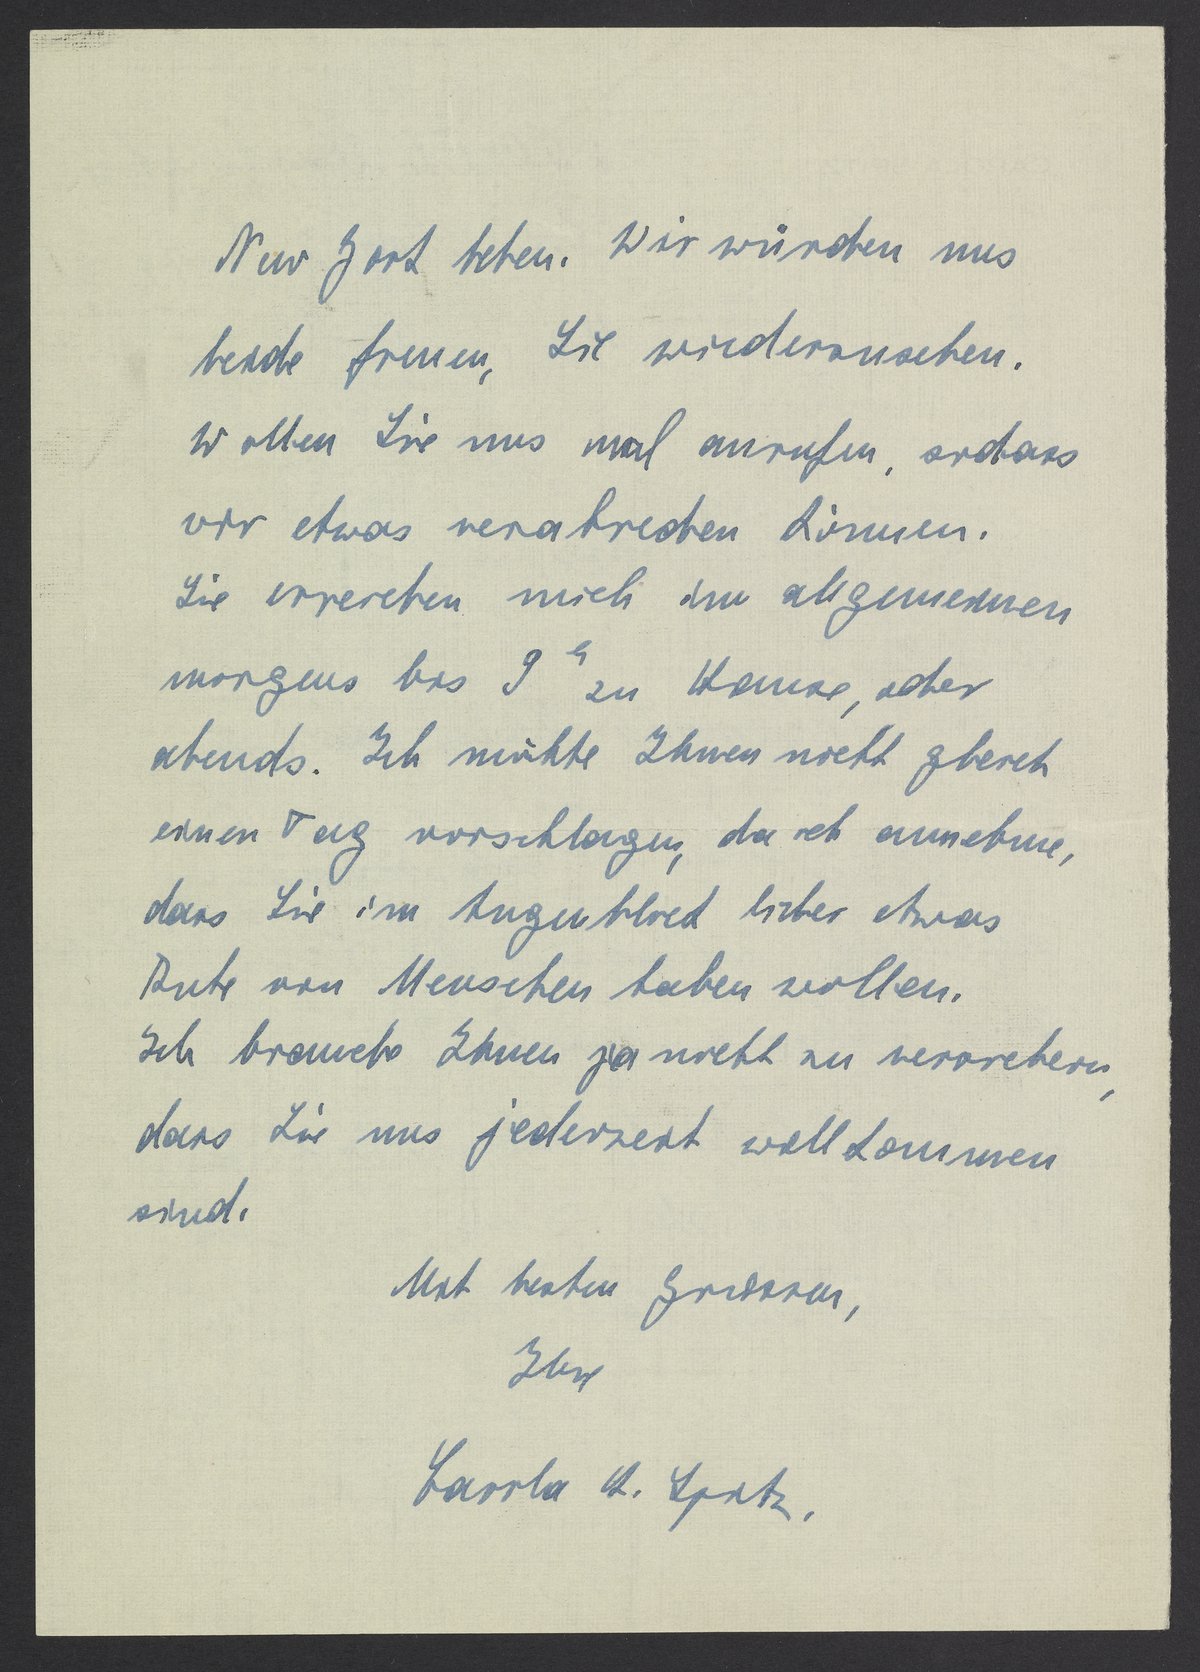 New York leben. Wir würden uns
beide freuen, Sie wiederzusehen.
Wollen Sie uns mal anrufen, sodass
wir etwas verabreden können.
Sie erreichen mich im allgemeinen
morgens bis 9 h zu Hause, oder
abends. Ich möchte Ihnen nicht gleich
einen Tag vorschlagen, da ich annehme,
dass Sie im Augenblick lieber etwas
Ruhe von Menschen haben wollen.
Ich brauche Ihnen ja nicht zu versichern,
dass Sie uns jederzeit willkommen
sind.
Mit besten Grüssen,
Ihre
Carola H. Spatz.